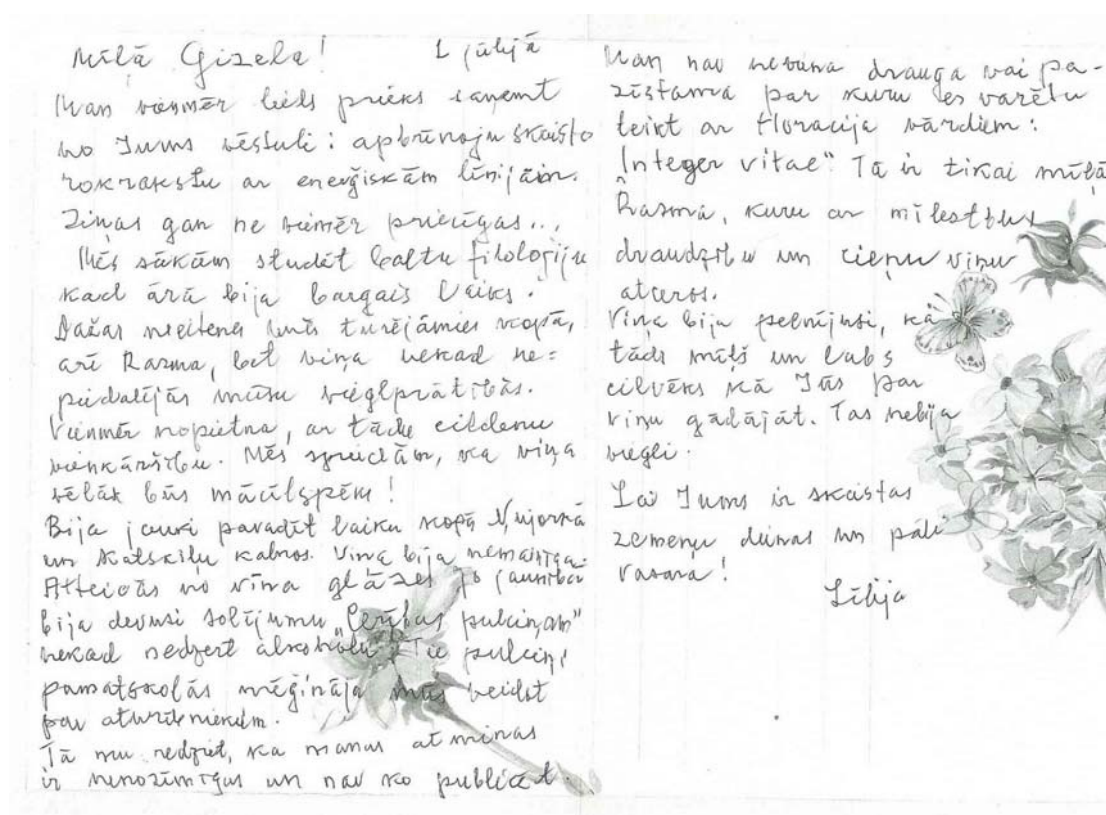 Mīļā Gizela! 1 jūlijā
Man vienmēr liels prieks saņemt
no Jums vēstuli: apbrīnoju skaisto
rokrakstu ar enerģiskām līnijām.
Ziņas gan ne vienmēr priecīgas...
Mēs sākām studēt baltu filoloģiju
kad ārā bija bargais laiks.
Dažas meitenes mēs turējāmies kopā,
arī Rasma, bet viņa nekad ne=
piedalījās mūsu vieglprātībās.
Vienmēr nopietna, ar tādu cildenu
vienkāršību. Mēs spriedām, ka viņa
vēlāk būs mācītspēks!
Bija jauki pavadīt laiku kopā Ņujorkā
un Katskiļu kalnos. Viņa bija nemainīga.
Atteicās no vīna glāzes, jo jaunībā
bija devusi solījumu "Cerības pulciņam"
nekad nedzert alkoholu. Tie pulciņi
pamatskolās mēģināja mūs veidot
par atturībniekiem.
Tā nu redziet, ka manas atmiņas
ir nenozīmīgas un nav ko publicēt.
Man nav neviena drauga vai pa-
zīstama par kuru es varētu
teikt ar Horacija vārdiem:
"Integer vitae" Tā ir tikai mīļā
Rasma, kuru ar mīlestību,
draudzību un cieņu viņu
atceros.
Viņa bija pelnījusi, ka
tāds mīļš un labs
cilvēks kā Jūs par
viņu gādājāt. Tas nebija
viegli.
Lai Jums ir skaistas
zemeņu dienas un pati
vasara!
Lilija